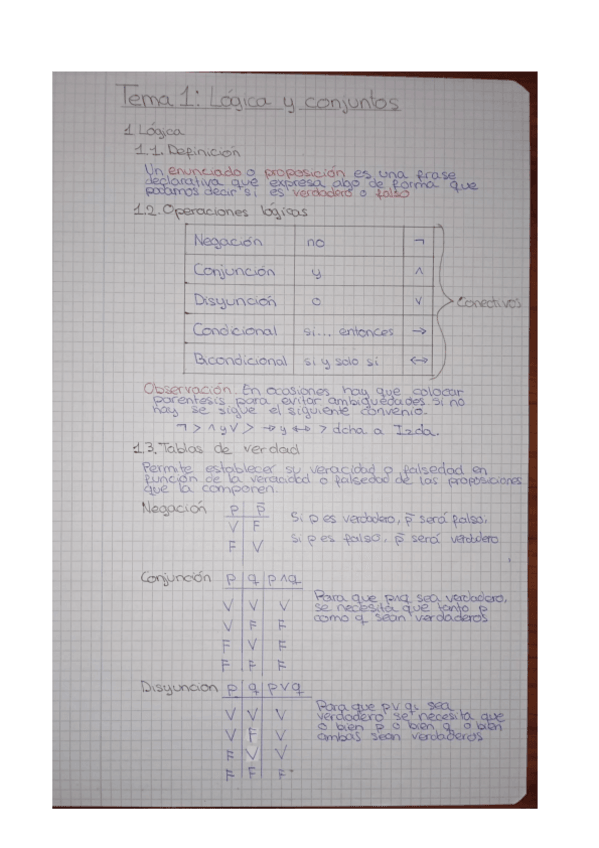 Tema 1: Lógica y conjuntos
1 Lógica
1.1. Definición
Un enunciado o proposición es una frase
declarativa que expresa algo de forma que
podamos decir si es verdadero o falso
1.2. Operaciones lógicas
Negación no ¬
Conjunción y ∧
Disyunción o ∨
Condicional si.... entonces →
Bicondicional si y solo si ↔
Conectivos
Observación. En ocasiones hay que colocar
parentesis para evitar ambiguedades si no
hay se sigue el siguiente convenio.
¬ > ∧ y ∨ > → y ↔ > dcha a Izda.
1.3. Tablas de verdad
Permite establecer su veracidad o falsedad en
función de la veracidad o falsedad de las proposiciones
que la componen.
Negación p p̄
V F
F V
Si p es verdadero, p̄ será falso.
Si p es falso, p̄ será verdadero
Conjunción p q p∧q
V V V
V F F
F V F
F F F
Para que p∧q sea verdadero,
se necesita que tanto p
como q sean verdaderos
Disyuncion p q p∨q
V V V
V F V
F V V
F F F
Para que p∨q sea
verdadero se necesita que
o bien p o bien q o bien
ambas sean verdaderos